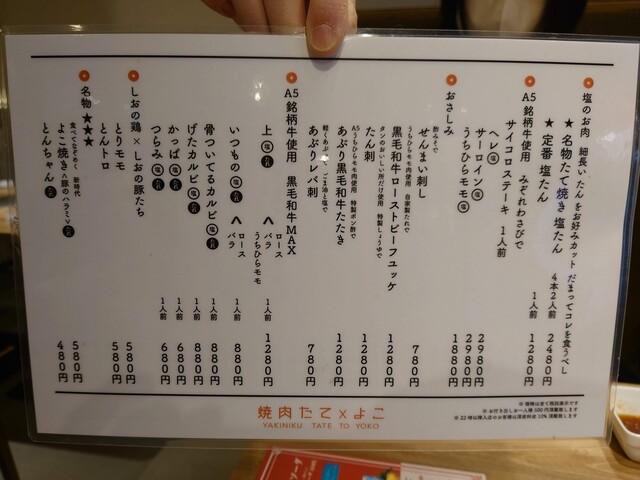 塩のお肉 細長いたんをお好みカット だまってコレを食うべし
★ 名物たて焼き塩たん 4本2人前 2480円
★ 定番 塩たん 1人前 1280円
A5銘柄牛使用 みぞれわさびで
サイコロステーキ 1人前
ヘレ 塩 2980円
サーロイン 塩 2980円
うちひらモモ 塩 1880円
おさしみ
酢みそで
せんまい刺し 780円
うちひらモモ肉使用 自家製たれで
黒毛和牛ローストビーフユッケ 1280円
タンのおいしい所だけ使用 特製しょうゆで
たん刺 1280円
A5うちひらモモ肉使用 特製ポン酢で
あぶり黒毛和牛たたき 1280円
軽くあぶって、ごま油と塩で
あぶりレバ刺 780円
A5銘柄牛使用 黒毛和牛MAX
上 塩 たれ ヘ ロース バラ うちひらモモ 1人前 1280円
いつもの 塩 たれ ヘ ロース バラ 1人前 880円
骨ついてるカルビ 塩 たれ 1人前 880円
げたカルビ 塩 たれ 1人前 880円
かっぱ 塩 たれ 1人前 680円
つらみ 塩 たれ 1人前 680円
しおの鶏×しおの豚たち
とりモモ 580円
とんトロ 580円
名物★★★
食べてなぞめく 新時代
よこ焼き<豚のハラミ> たれ 580円
とんちゃん たれ 480円
焼肉たて×よこ
YAKINIKU TATE TO YOKO
※ 価格は全て税抜表示です
※ お付き出しお一人様300円頂戴致します
※ 22時以降入店のお客様は深夜料金10%頂戴致します